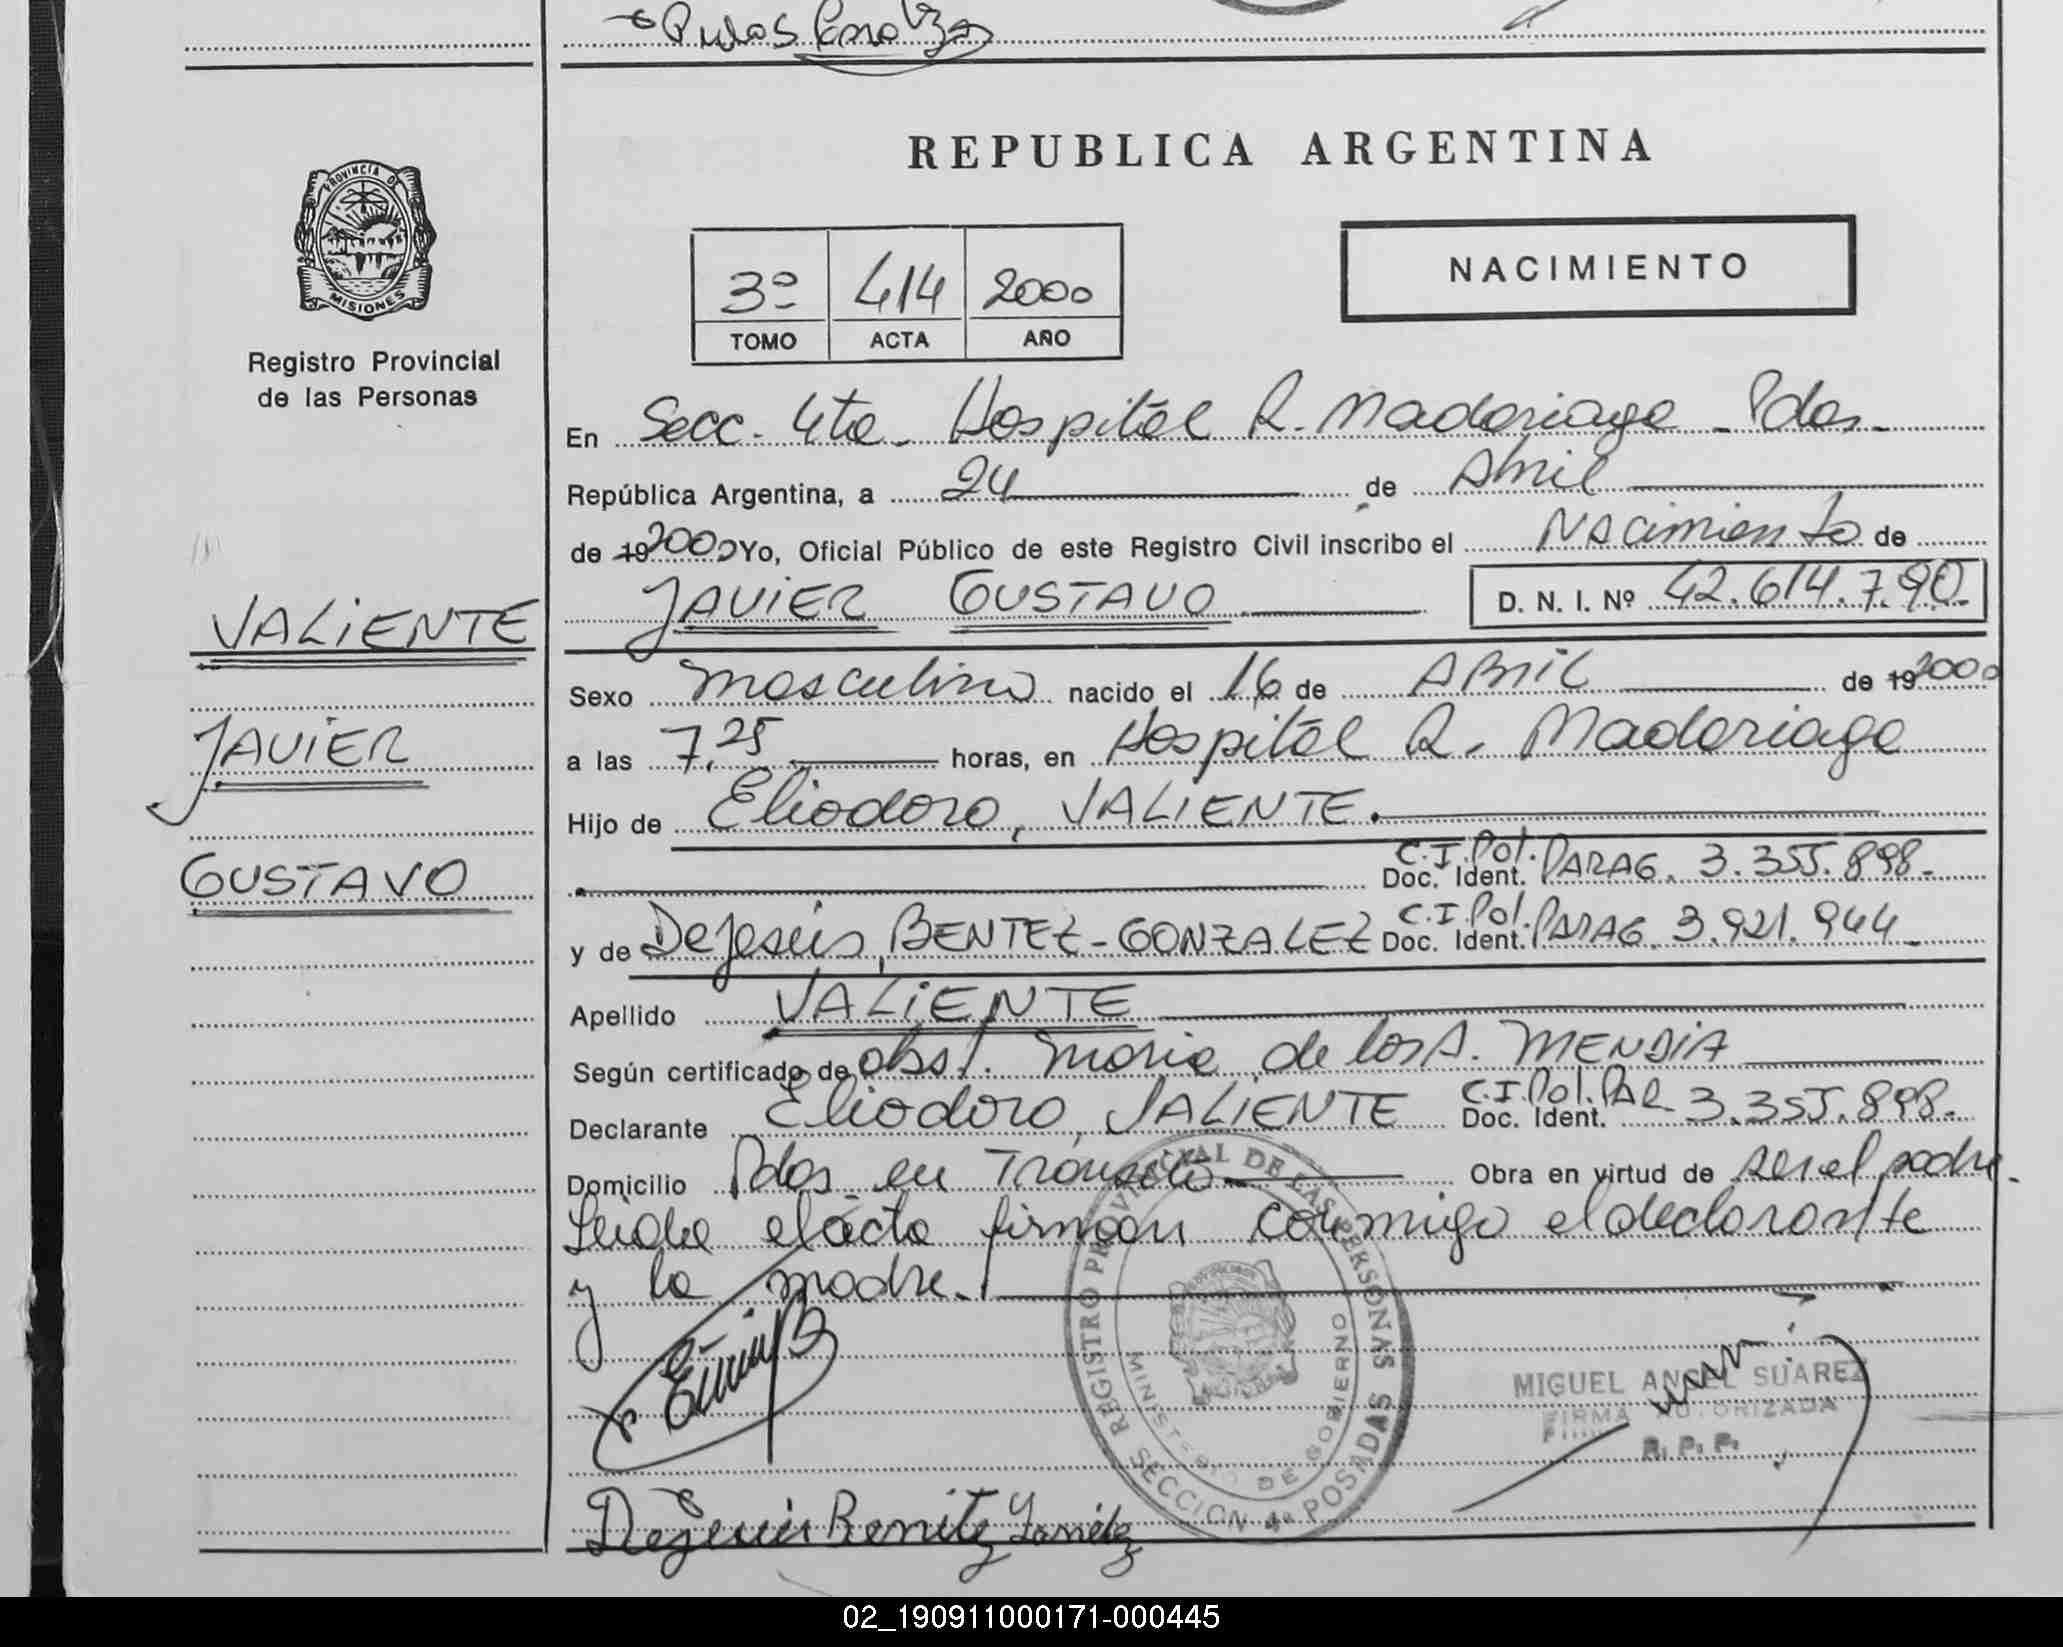 PROVINCIA DE
MISIONES
Registro Provincial
de las Personas
VALIENTE
JAVIER
GUSTAVO
REPUBLICA ARGENTINA
3º 414 2000
TOMO ACTA AÑO
NACIMIENTO
En Secc. 4ta. Hospital R. Madariaga - Pdas.
República Argentina, a 24 de Abril
de 19 2000 Yo, Oficial Público de este Registro Civil inscribo el Nacimiento de
JAVIER GUSTAVO D. N. I. Nº 42.614.790.
Sexo masculino nacido el 16 de Abril de 19 2000
a las 7,25 horas, en Hospital R. Madariaga
Hijo de Eliodoro, VALIENTE.
C.I. Pol.
Doc. Ident. PARAG. 3.355.898.
C.I. Pol.
y de Dejesús, BENTEZ-GONZALEZ Doc. Ident. PARAG. 3.921.944
Apellido VALIENTE
Según certificado de obst. Maria de los A. MENDIA
C.I. Pol. PAR
Declarante Eliodoro, VALIENTE Doc. Ident. 3.355.898.
Domicilio Pdas. en Transito Obra en virtud de ser el padre.
Leida el acta firman conmigo el declarante
y la madre.
REGISTRO PROVINCIAL DE LAS PERSONAS
MINISTERIO DE GOBIERNO
SECCION 4ª POSADAS
MIGUEL ANGEL SUAREZ
FIRMA AUTORIZADA
R. P. P.
Dejesús Benitez
02_190911000171-000445